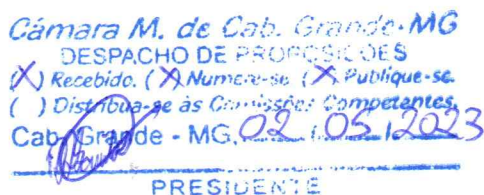 Câmara M. de Cab. Grande-MG
DESPACHO DE PROPOSIÇÕES
(X) Recebido. (X) Numere-se (X) Publique-se.
( ) Distribua-se às Comissões Competentes.
Cab. Grande - MG, 02 / 05 / 2023
PRESIDENTE